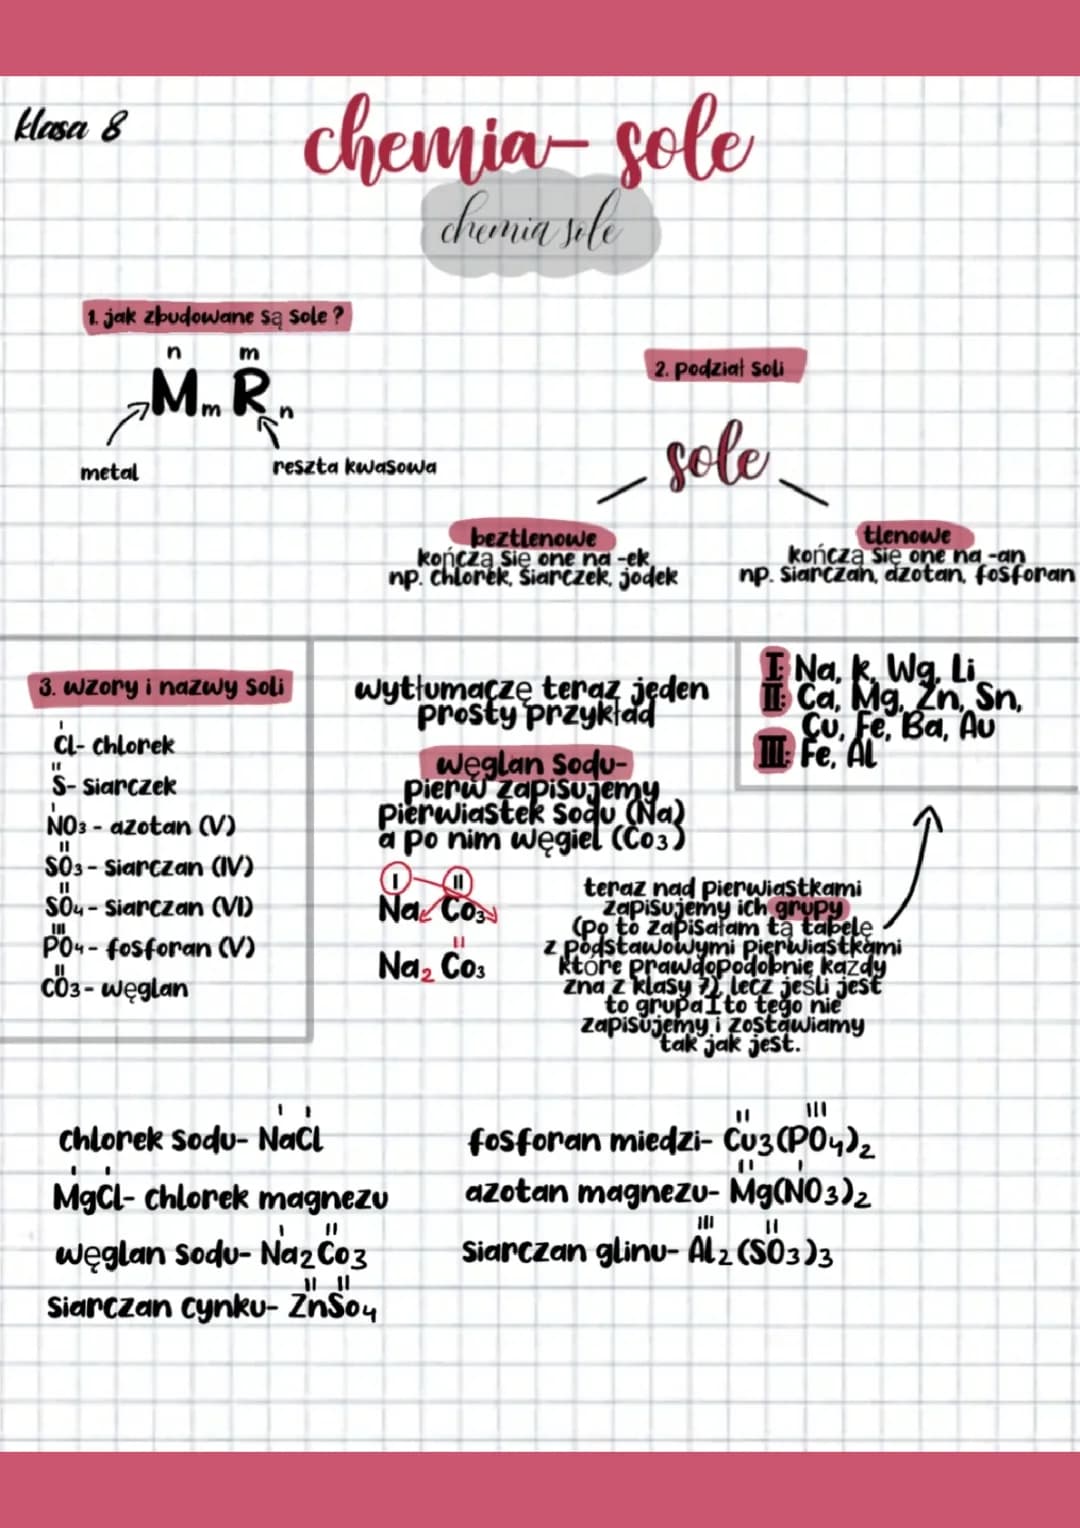 klasa 8
chemia- sole
chemia sole
1. jak zbudowane są sole?
n m
MmRn
metal
reszta kwasowa
2. podział soli
sole
beztlenowe
kończą się one na -ek
np. chlorek, siarczek, jodek
tlenowe
kończą się one na -an
np. siarczan, azotan, fosforan
3. wzory i nazwy soli
I
Cl- chlorek
II
S- siarczek
I
NO3 - azotan (V)
II
SO3 - siarczan (IV)
II
SO4 - siarczan (VI)
III
PO4 - fosforan (V)
II
CO3 - węglan
wytłumaczę teraz jeden
prosty przykład
węglan sodu-
pierw zapisujemy
pierwiastek sodu (Na)
a po nim węgiel (Co3)
I II
Na Co3
II
Na2 Co3
I: Na, K, Wg, Li
II: Ca, Mg, Zn, Sn,
Cu, Fe, Ba, Au
III: Fe, Al
teraz nad pierwiastkami
zapisujemy ich grupy
(Po to zapisałam tą tabelę
z podstawowymi pierwiastkami
które prawdopodobnie każdy
zna z klasy 7), lecz jeśli jest
to grupa I to tego nie
zapisujemy i zostawiamy
tak jak jest.
I I
chlorek sodu- NaCl
I I
MgCl- chlorek magnezu
I II
węglan sodu- Na2Co3
II II
siarczan cynku- ZnSo4
II III
fosforan miedzi- Cu3(PO4)2
II I
azotan magnezu- Mg(NO3)2
III II
siarczan glinu- Al2(SO3)3